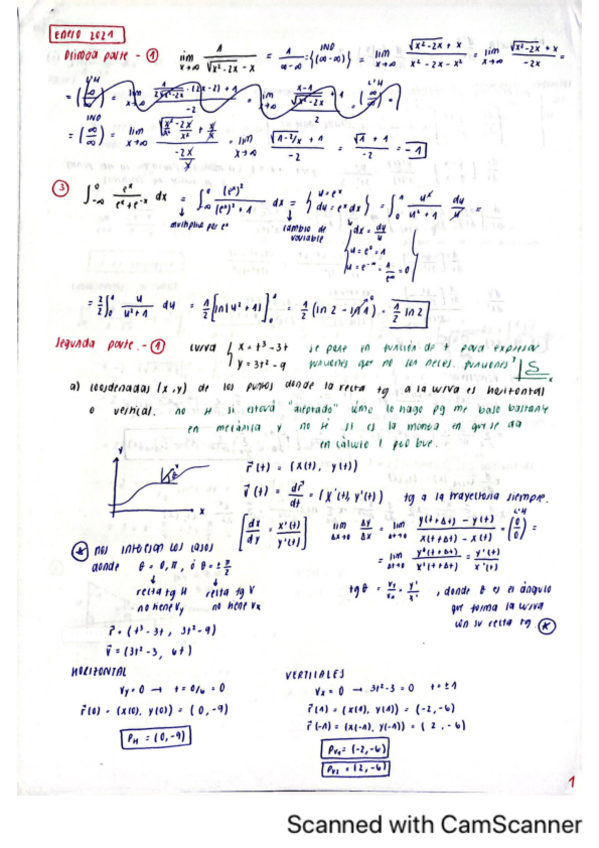 ENERO 2021
Primera parte - ① lim x→∞ 1/(√(x²-2x) - x) = 1/(∞-∞) = {IND (∞-∞)} = lim x→∞ (√(x²-2x) + x)/(x²-2x-x²) = lim x→∞ (√(x²-2x) + x)/(-2x) =
= (∞/∞) L'H = lim x→∞
= (∞/∞) IND = lim x→∞ (√(x²/x² - 2x/x²) + x/x)/(-2x/x) = lim x→∞ (√(1-2/x) + 1)/(-2) = (√1 + 1)/(-2) = -1
③ ∫_{-∞}^0 eˣ/(eˣ+e⁻ˣ) dx = ∫_{-∞}^0 (eˣ)²/((eˣ)²+1) dx = {u=eˣ
du=eˣdx} = ∫_0^1 u²/(u²+1) du/u =
multiplica por eˣ
cambio de variable
{dx = du/u
u=e⁰=1
u=e^-∞ = 1/e^∞ = 0}
= 2/2 ∫_0^1 u/(u²+1) du = 1/2 [ln|u²+1|]_0^1 = 1/2 (ln 2 - ln 1) = 1/2 ln 2
Segunda parte.- ① curva {x = t³-3t
y = 3t²-9
se pone en función de t para expresar
funciones que no son funciones
a) coordenadas (x,y) de los puntos donde la recta tg a la curva es horizontal
o vertical. no sé si estará "aceptado" cómo lo hago pq me baso bastante
en mecánica y no sé si es la manera en que se da
en cálculo 1
y
x
r⃗(t) = (x(t), y(t))
v⃗(t) = dr⃗/dt = (x'(t), y'(t)) tg a la trayectoria siempre.
[dx/dy = x'(t)/y'(t)] lim Δx→0 Δy/Δx = lim Δt→0 (y(t+Δt) - y(t))/(x(t+Δt) - x(t)) = (0/0) L'H =
= lim Δt→0 y'(t+Δt)/x'(t+Δt) = y'(t)/x'(t)
tgθ = vy/vx = y'/x', donde θ es el ángulo
que forma la curva
con su recta tg
nos interesan los casos
donde θ = 0, π, ó θ = ±π/2
recta tg H recta tg V
no tiene vy no tiene vx
r⃗ = (t³-3t, 3t²-9)
v⃗ = (3t²-3, 6t)
HORIZONTAL
vy=0 → t = 0/6 = 0
r⃗(0) = (x(0), y(0)) = (0,-9)
P_H = (0,-9)
VERTICALES
vx = 0 → 3t²-3 = 0 t = ±1
r⃗(1) = (x(1), y(1)) = (-2,-6)
r⃗(-1) = (x(-1), y(-1)) = (2,-6)
P_V1 = (-2,-6)
P_V2 = (2,-6)
1
Scanned with CamScanner